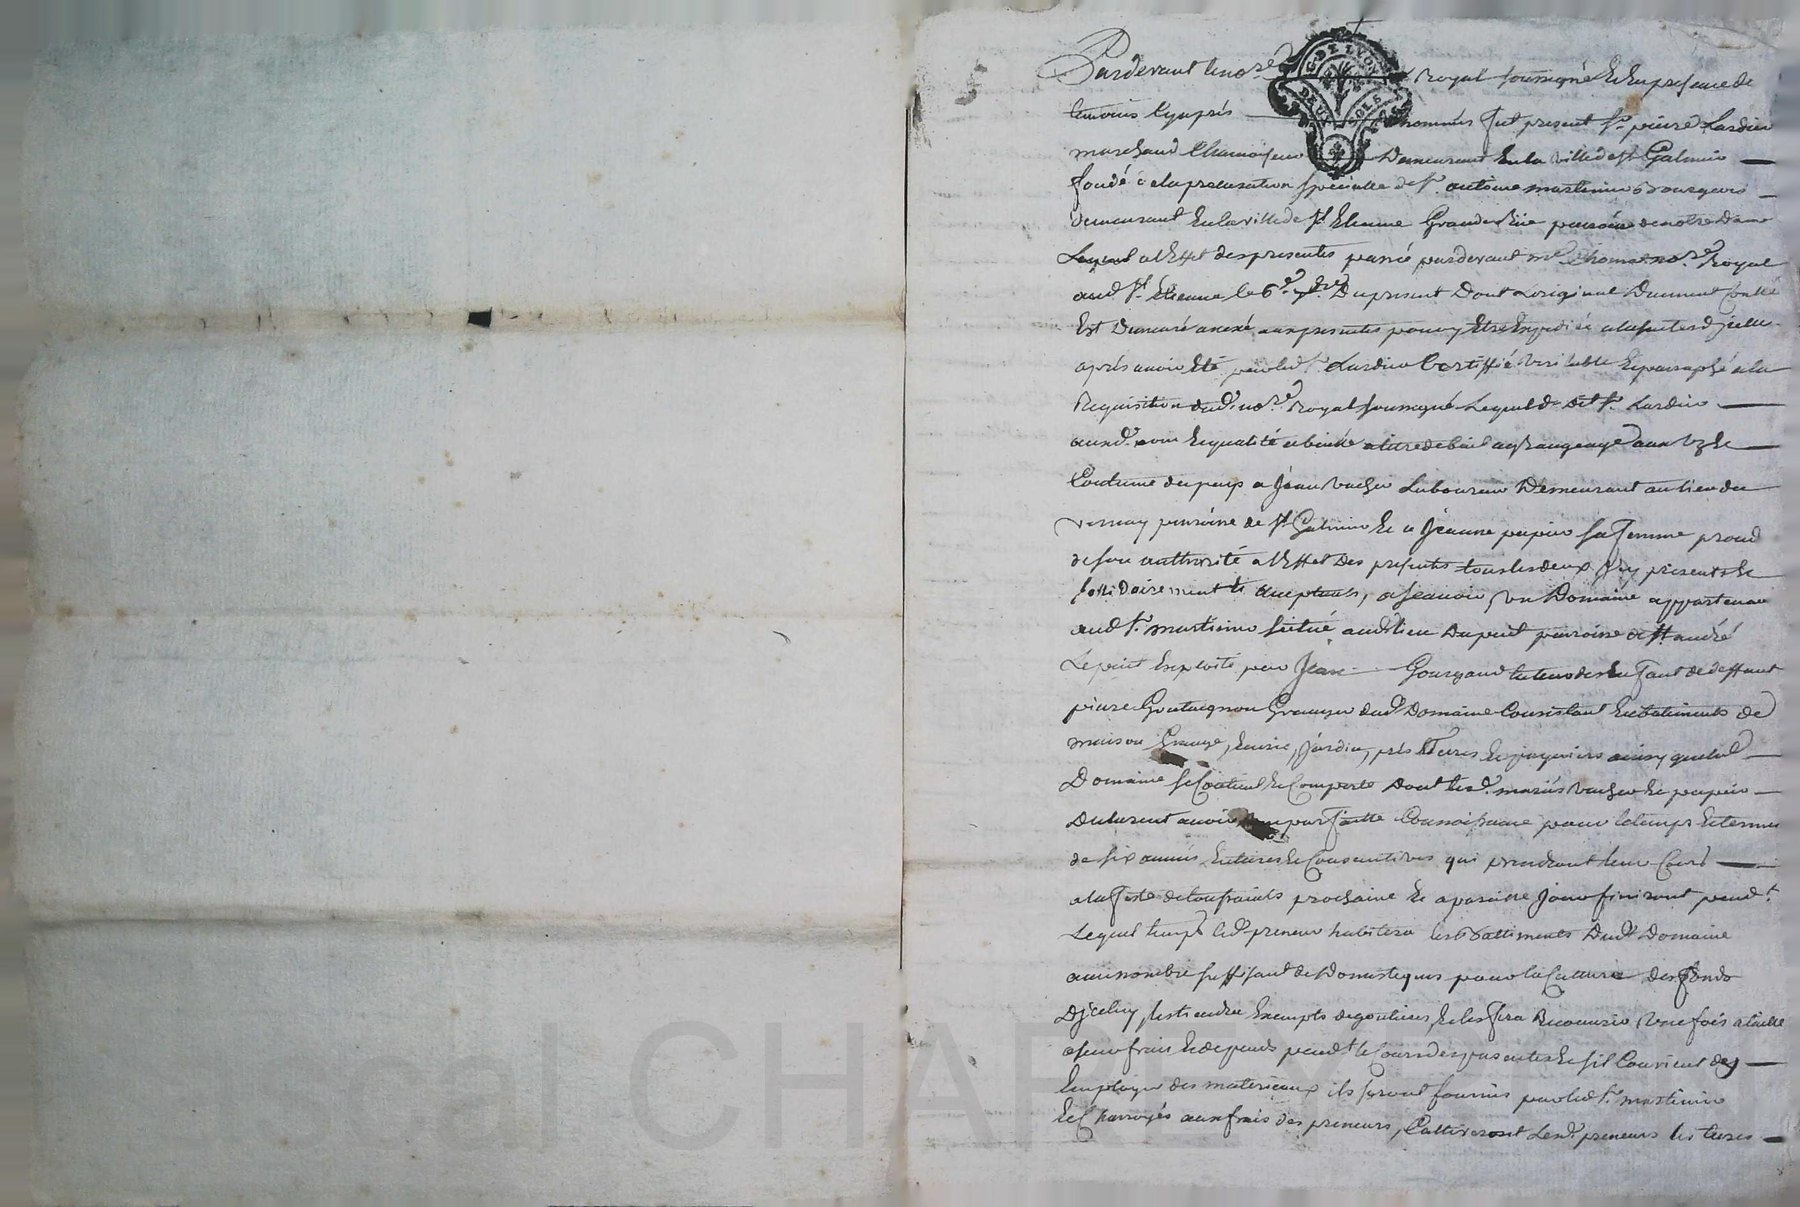 Pardevant le no.re Royal soussigné Et En presence de
temoins cy aprés nommés fut present Sr. pierre Lardier
marchand Chamoiseur Demeurant En la ville de St Galmier
fondé de la procuration specialle de Sr. antoine martinier Bourgeois
demeurant En la ville de St Etienne Grande Rüe paroisse de notre Dame
Lequel a l'Effet des presentes passé pardevant me no.re Royal
aud. St. Etienne le 6e. 7bre. Du present Dont L'original Duement Contlé
Est Demeuré anexé aux presentes pour y Etre Expedié a la suitte d'jcelles
aprés avoir Eté par led. Sr. Lardier Certiffié veritable Et paraphé a la
Requisition dud. no.re Royal soussigné Lequel dit Sr. Lardier
aud. nom Et qualité a titre de bail a grangeage aux us Et
Coutume du pays a Jean vacher Laboureur Demeurant au lieu du
vernay paroisse de St Galmier Et a Jeanne papier sa femme
de son authorité a l'Effet Des presentes tous les deux Jcy presents Et
sollidairement acceptants, a scavoir, un Domaine appartenant
aud. Sr. martinier situé aud. lieu paroisse de St. andré
Le puit Exploité par Jean Gourgaud tuteur des Enfant de deffunt
pierre Granger dud. Domaine Consistant En batiments de
maison Grange, Ecurie, Jardin, prés Terres Et paquiers ainsy que led.
Domaine se Contient Et Comporte Dont les d. mariés vacher Et papier
Declarent avoir parfaitte Connoissance pour le temps Et terme
de six années Entieres Et Consecutives qui prendront leur Cours
a la Feste de Toussaints prochaine Et a pareille Jour finiront pend.t
Lequel temps led. preneur habitera les Battiments Dud. Domaine
avec nombre suffisant de Domestiques pour la Culture des fonds
D'jceluy, les tiendra Exempts de goutieres, Et les fera Recouvrir une fois a taille
a leur frais Et depends pend.t le Cours des presentes Et s'il Convient d'y
Employer des materieaux ils seront fournis par led. Sr. martinier
Et Charroyés aux frais des preneurs, Cultiveront Lesd. preneurs les terres